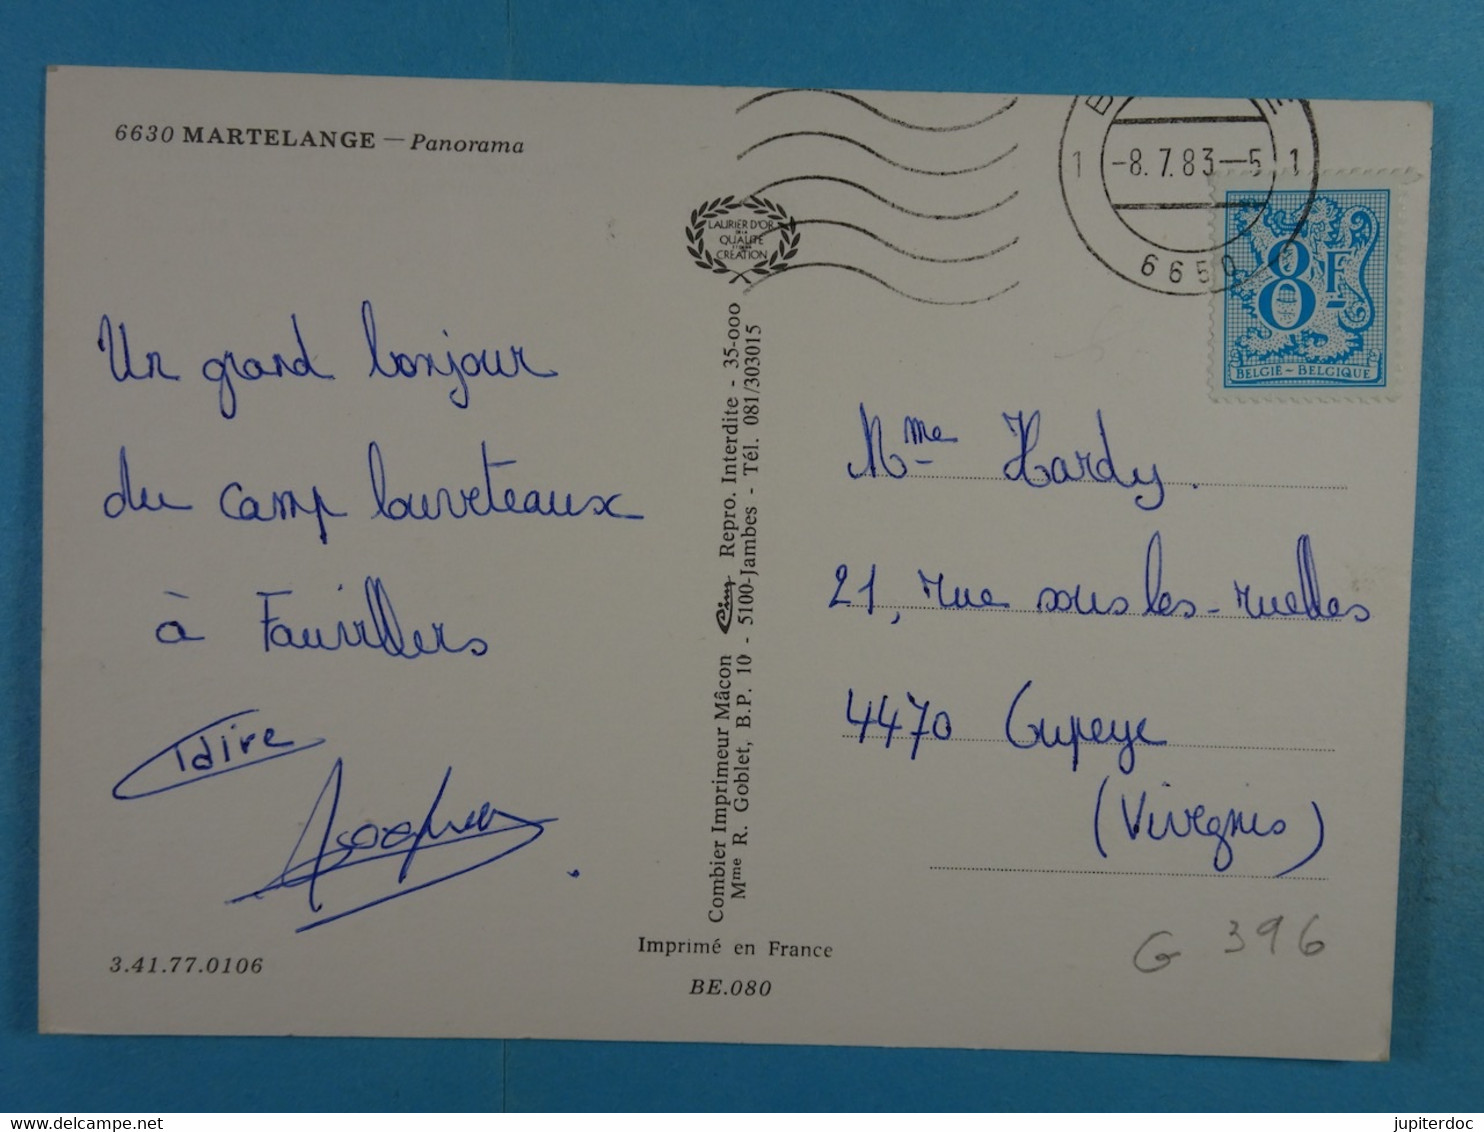 6630 MARTELANGE — Panorama
Un grand bonjour
du camp louveteaux
à Fauvillers
3.41.77.0106
LAURIER D'OR
DE LA
QUALITÉ
CRÉATION
Combier Imprimeur Mâcon Cim Repro. Interdite - 35-000
Mme R. Goblet, B.P. 10 - 5100-Jambes - Tél. 081/303015
Imprimé en France
BE.080
1 -8.7.83-5 1
6650
8F
BELGIË-BELGIQUE
Mme Hardy.
21, rue sous les-ruelles
4470 Oupeye
(Vivegnis)
G 396
jupiterdoc